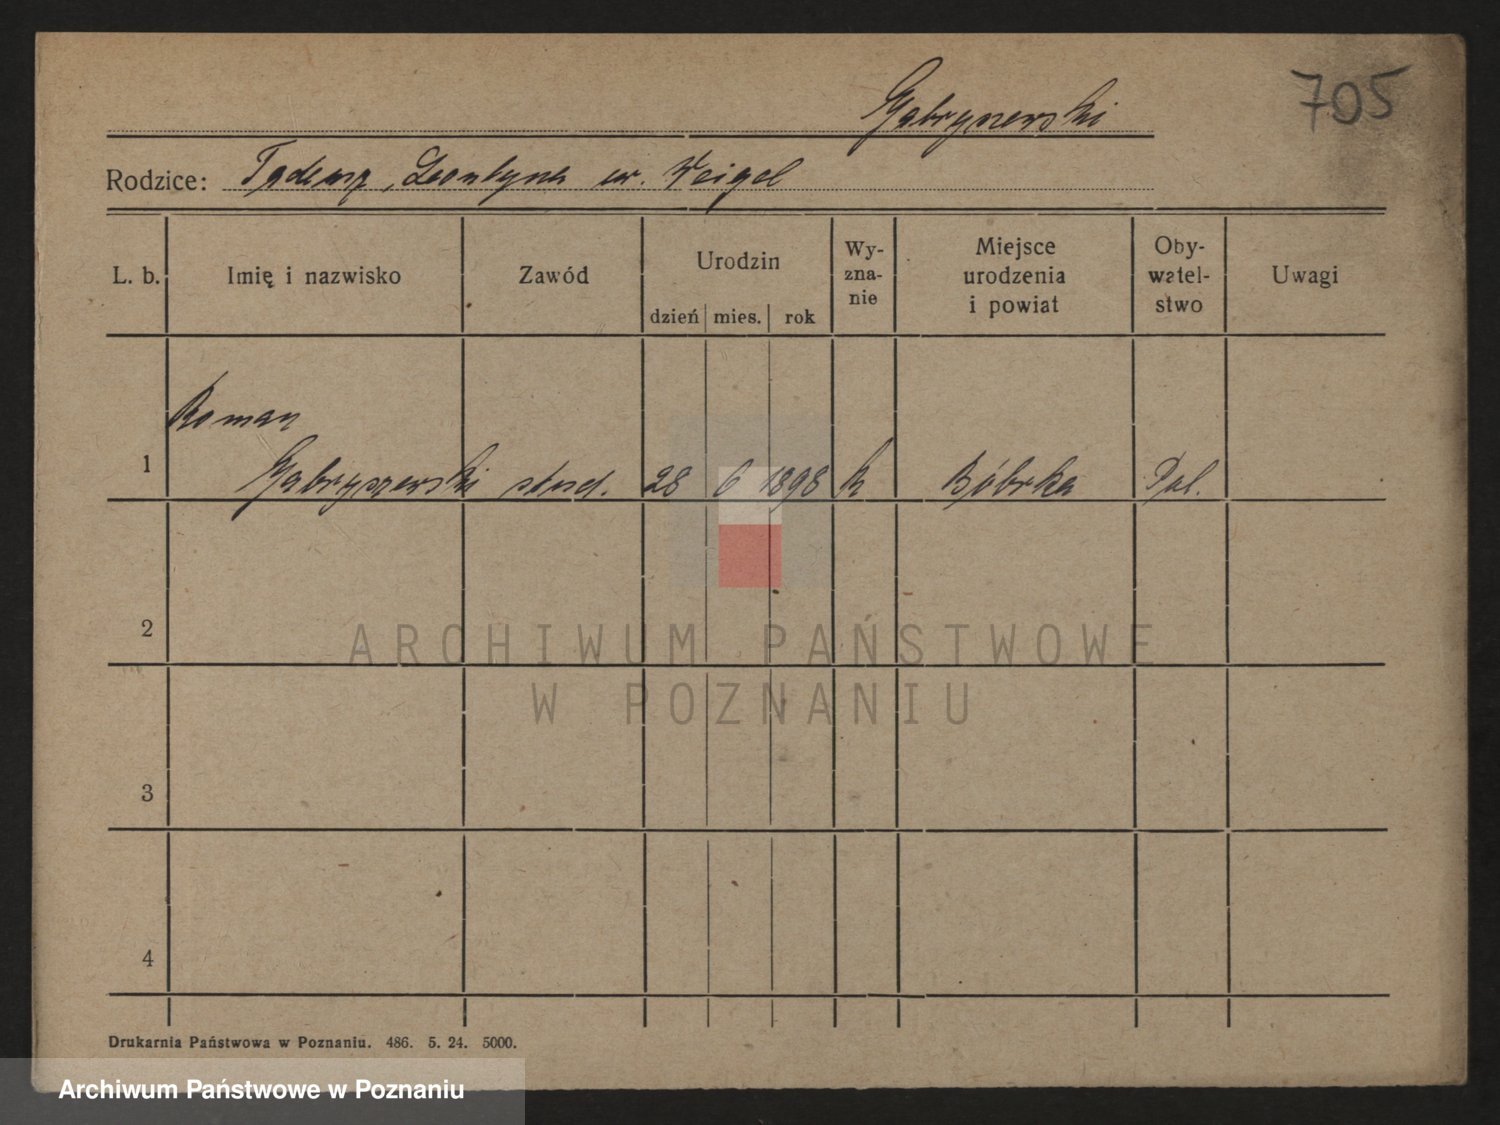 705
Gabryszewski
Rodzice: Tadeusz, Leontyna ur. Weigel
L. b. Imię i nazwisko Zawód Urodzin dzień mies. rok Wy-zna-nie Miejsce urodzenia i powiat Oby-watel-stwo Uwagi
Roman
1 Gabryszewski stud. 28 6 1898 k Bóbrka Pol.
2
ARCHIWUM PAŃSTWOWE
W POZNANIU
3
4
Drukarnia Państwowa w Poznaniu. 486. 5. 24. 5000.
Archiwum Państwowe w Poznaniu